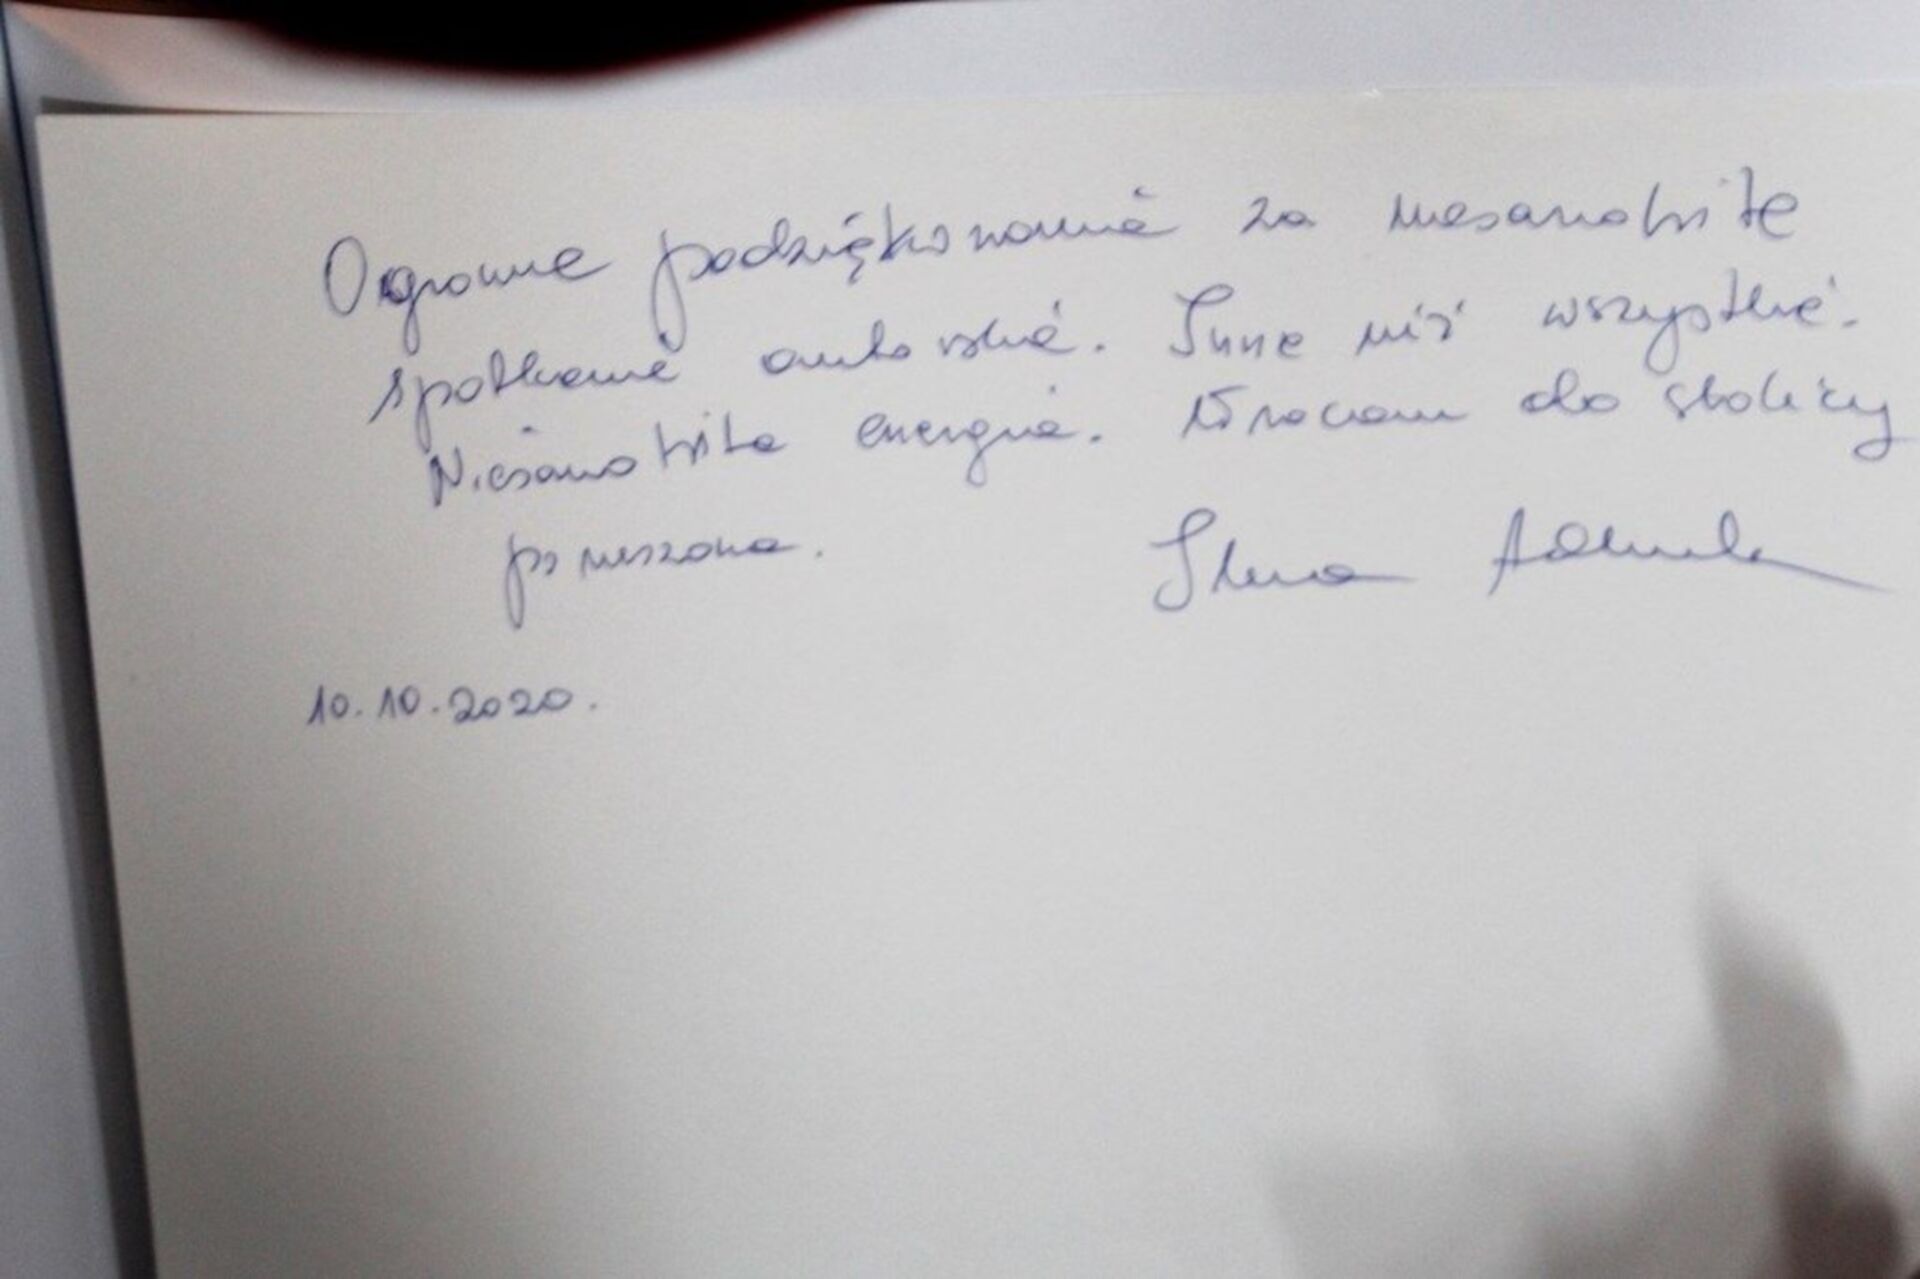 Ogromne podziękowania za niesamowite
spotkanie autorskie. Inne niż wszystkie.
Niesamowita energia. Wracam do stolicy
poruszona.
10.10.2020.